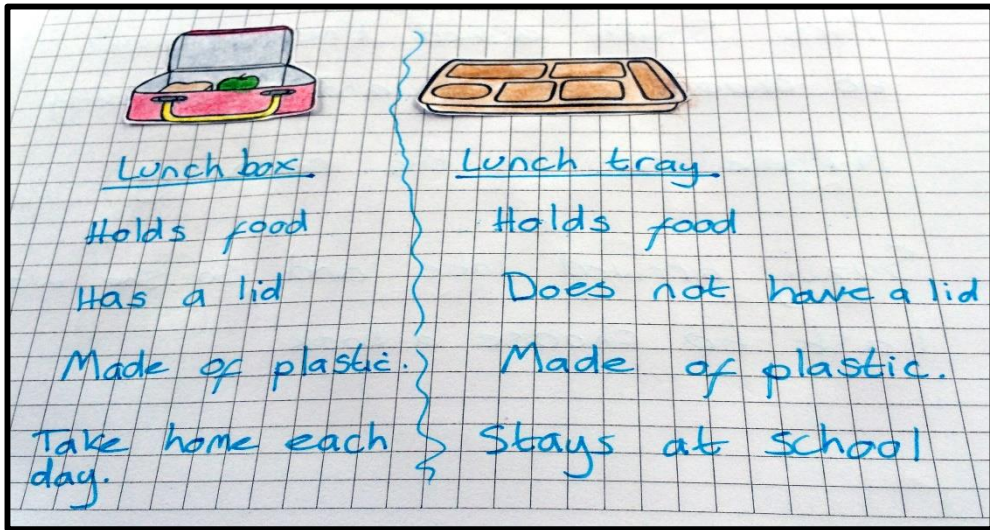 Lunch box.
Holds food
Has a lid
Made of plastic.
Take home each
day.
Lunch tray.
Holds food
Does not have a lid
Made of plastic.
Stays at school